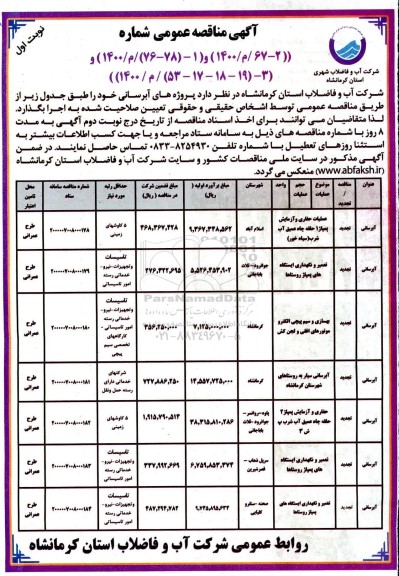 آگهی مناقصه عمومی شماره
نوبت اول
((۲-۶۷/م/۱۴۰۰) و(۱-(۷۸-۷۶)/م/۱۴۰۰) و
(۳-(۱۹-۱۸-۱۷-۵۳)/م/۱۴۰۰))
شرکت آب و فاضلاب شهری
استان کرمانشاه
شرکت آب و فاضلاب استان کرمانشاه در نظر دارد پروژه های آبرسانی خود را طبق جدول زیر از
طریق مناقصه عمومی توسط اشخاص حقیقی و حقوقی تعیین صلاحیت شده به اجرا بگذارد.
لذا متقاضیان می توانند برای اخذ اسناد مناقصه از تاریخ درج نوبت دوم آگهی به مدت
۸ روز با شماره مناقصه های ذیل به سامانه ستاد مراجعه و یا جهت کسب اطلاعات بیشتر به
استثنا روزهای تعطیل با شماره تلفن ۸۲۵۴۹۳۰-۰۸۳۳ تماس حاصل نمایند. در ضمن
آگهی مذکور در سایت ملی مناقصات کشور و سایت شرکت آب و فاضلاب استان کرمانشاه
(www.abfaksh.ir) منعکس می گردد.
عنوان مناقصه / تجدید موضوع عملیات حجم عملیات واحد شهرستان مبلغ برآورد اولیه (ریال) مبلغ تضمین شرکت در مناقصه (ریال) حداقل رتبه مورد نیاز شماره مناقصه سامانه ستاد محل تامین اعتبار
آبرسانی تجدید عملیات حفاری و آزمایش پمپاژ۱ حلقه چاه عمیق آب شرب(سیاه خور) اسلام آباد ۹,۳۶۷,۳۴۸,۵۶۲ ۴۶۸,۳۶۷,۴۲۸ ۵ کاوشهای زمینی ۲۰۰۰۰۰۷۰۸۰۰۰۱۷۸ طرح عمرانی
آبرسانی تجدید تعمیر و نگهداری ایستگاه های پمپاژ روستاها جوانرود-ثلاث باباجانی ۵,۵۲۶,۴۵۳,۹۰۲ ۲۷۶,۳۲۲,۶۹۵ تاسیسات وتجهیزات-نیرو-خدماتی رسته امور تاسیساتی ۲۰۰۰۰۰۷۰۸۰۰۰۱۷۹ طرح عمرانی
آبرسانی تجدید بهسازی و سیم پیچی الکترو موتورهای افقی و لجن کش کرمانشاه ۷,۱۲۵,۰۰۰,۰۰۰ ۳۵۶,۲۵۰,۰۰۰ تاسیسات-وتجهیزات-نیرو-خدماتی رسته امور تاسیساتی-کارگاههای تخصصی سیم پیچی ۲۰۰۰۰۰۷۰۸۰۰۰۱۸۰ طرح عمرانی
آبرسانی تجدید آبرسانی سیار به روستاهای شهرستان کرمانشاه کرمانشاه ۱۴,۵۵۷,۷۲۵,۰۰۰ ۷۲۷,۸۸۶,۲۵۰ شرکتهای خدماتی دارای رسته حمل ونقل ۲۰۰۰۰۰۷۰۸۰۰۰۱۸۱ طرح عمرانی
آبرسانی تجدید حفاری و آزمایش پمپاژ۲ حلقه چاه عمیق آب شرب پ ش ۳ پاوه-روانسر-جوانرود-ثلاث باباجانی ۳۸,۳۱۵,۸۱۰,۲۸۶ ۱,۹۱۵,۷۹۰,۵۱۴ ۵ کاوشهای زمینی ۲۰۰۰۰۰۷۰۸۰۰۰۱۸۲ طرح عمرانی
آبرسانی تجدید تعمیر و نگهداری ایستگاه های پمپاژ روستاها سرپل ذهاب-قصرشیرین ۶,۷۵۹,۸۵۳,۳۷۴ ۳۳۷,۹۹۲,۶۶۹ تاسیسات وتجهیزات-نیرو-خدماتی رسته امور تاسیساتی طرح عمرانی
آبرسانی تجدید تعمیر و نگهداری ایستگاه های پمپاژ روستاها صحنه-سنقرو کلیایی ۹,۷۴۵,۸۹۵,۶۳۴ ۴۸۷,۲۹۴,۷۸۲ تاسیسات وتجهیزات-نیرو-خدماتی رسته امور تاسیساتی ۲۰۰۰۰۰۷۰۸۰۰۰۱۸۴ طرح عمرانی
ParsNamadData
۰۲۱-۸۸۳۴۹۶۷۰-۵
روابط عمومی شرکت آب و فاضلاب استان کرمانشاه